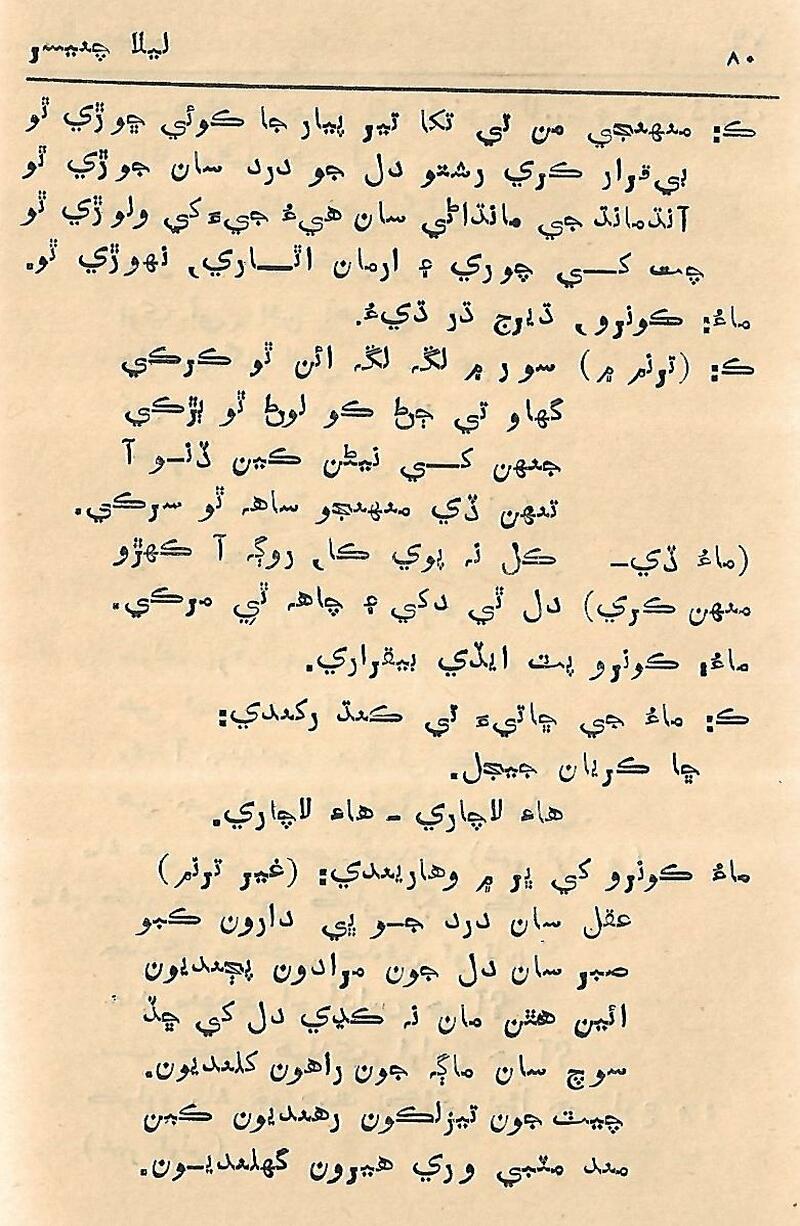 ٨٠
ليلا چنيسر
ڪ: منهنجي من تي تکا تير پيار جا ڪوئي ڇوڙي ٿو
بي‌قرار ڪري رشتو دل جو درد سان جوڙي ٿو
آنڌمانڌ جي مانڌاڻي سان هيءُ جيءَ کي ولوڙي ٿو
چت کــي چوري ۽ ارمان اٿــاري، نهوڙي ٿو.
ماءُ: ڪونئرو، ڌيرج ڌر ڌيءُ.
ڪ: (ترنم ۾) سور ۾ لڱ لڱ ائن ٿو ڪرڪي
گهاو تي ڄڻ ڪو لوڻ ٿو ٻڙڪي
جنهن کــي نيڻن ڪين ڏٺــو آ
تنهن ڏي منهنجو ساهه ٿو سرڪي.
(ماءُ ڏي- ڪل نہ پوي ڪا، روڳ آ ڪهڙو
منهن ڪري) دل ٿي دکي ۽ چاهہ ٿي مرڪي.
ماءُ: ڪونئرو پٽ ايڏي بيقراري.
ڪ: ماءُ جي ڇاتيءَ تي ڪنڌ رکندي:
ڇا ڪريان جيجل.
هاءِ لاچاري - هاءِ لاچاري.
ماءُ ڪونئرو کي ڀر ۾ وهاريندي: (غير ترنم)
عقل سان درد جــو ٿي دارون ڪبو
صبر سان دل جون مرادون پڄنديون
ائين هٿن مان نہ ڪڍي دل کي ڇڏ
سوچ سان ماڳہ جون راهون کلنديون.
چيٽ جون تيزلڪون رهنديون ڪين
مند مٽبي وري هيرون گهلنديــون.